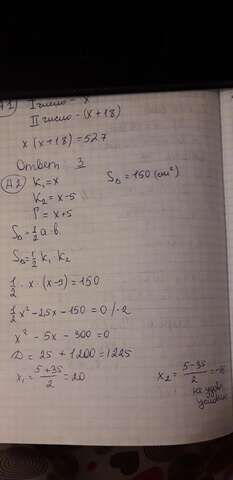 A1 I число - x
II число - (x + 18)
x (x+18) = 527
Ответ 3
A2 K₁ = x S△ = 150 (см²)
K₂ = x-5
Г = x+5
S△ = 1/2 a·b
S△ = 1/2 K₁ K₂
1/2 · x · (x-5) = 150
1/2 x² - 2,5x - 150 = 0 /·2
x² - 5x - 300 = 0
D = 25 + 1200 = 1225
x₁ = (5+35)/2 = 20 x₂ = (5-35)/2 =
не удов.